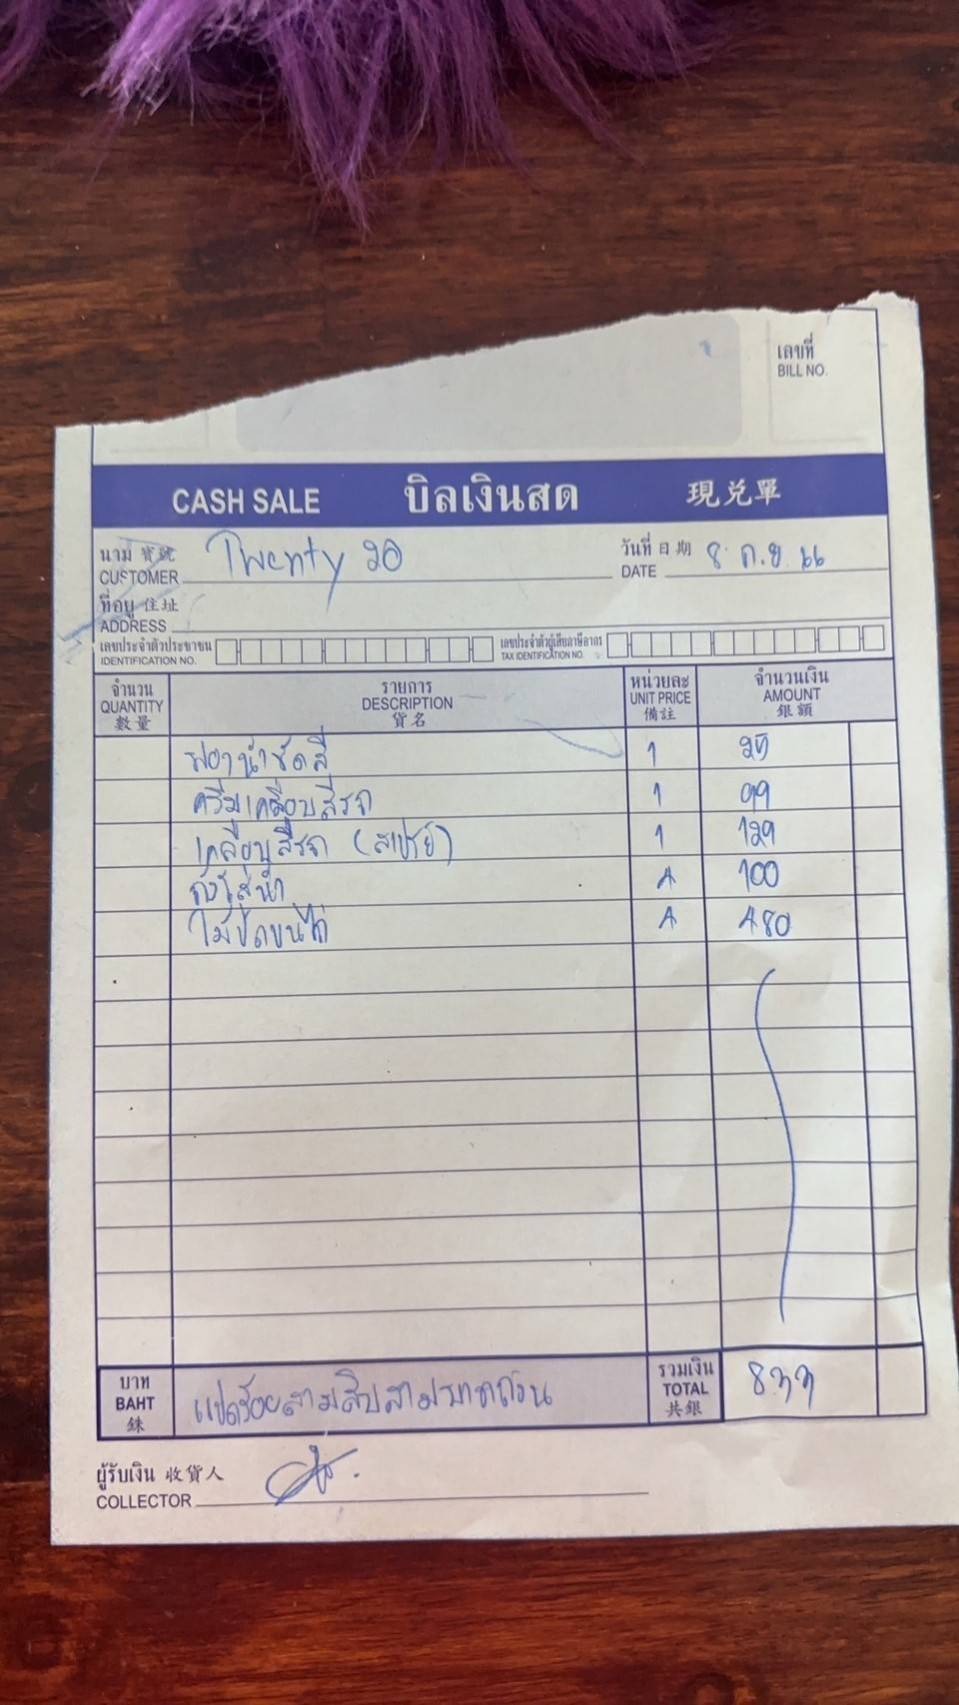 เลขที่
BILL NO.
CASH SALE บิลเงินสด 現兌單
นาม 寶號
CUSTOMER Twenty 20
วันที่ 日期
DATE 8 ก.ย. 66
ที่อยู่ 住址
ADDRESS
เลขประจำตัวประชาชน
IDENTIFICATION NO.
เลขประจำตัวผู้เสียภาษีอากร
TAX IDENTIFICATION NO.
จำนวน
QUANTITY
數量
รายการ
DESCRIPTION
貨名
หน่วยละ
UNIT PRICE
備註
จำนวนเงิน
AMOUNT
銀額
ฟองน้ำขัดสี 1 25
ครีมเคลือบสีรถ 1 99
เคลือบสีรถ (สเปรย์) 1 129
ถังใส่น้ำ 4 100
ไม้ปัดขนไก่ 4 480
บาท
BAHT
銖
แปดร้อยสามสิบสามบาทถ้วน
รวมเงิน
TOTAL
共銀
833
ผู้รับเงิน 收貨人
COLLECTOR